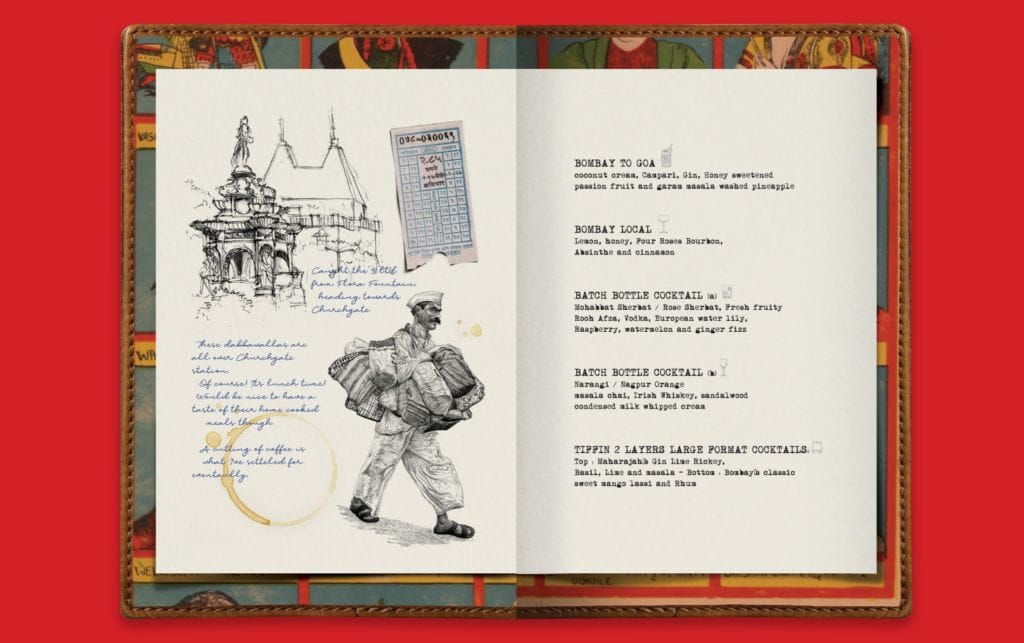 Caught the
from Flora Fountain,
heading towards
Churchgate
These dabbawallas are
all over Churchgate
station.
Of course! It's lunch time!
Would be nice to have a
taste of their home cooked
meals though.
A cutting of coffee is
what I've settled for
eventually.
BOMBAY TO GOA
coconut cream, Campari, Gin, Honey sweetened
passion fruit and garam masala washed pineapple
BOMBAY LOCAL
Lemon, honey, Four Roses Bourbon,
Absinthe and cinnamon
BATCH BOTTLE COCKTAIL (a)
Mohabbat Sherbat / Rose Sherbat, Fresh fruity
Rooh Afza, Vodka, European water lily,
Raspberry, watermelon and ginger fizz
BATCH BOTTLE COCKTAIL (b)
Narangi / Nagpur Orange
masala chai, Irish Whiskey, sandalwood
condensed milk whipped cream
TIFFIN 2 LAYERS LARGE FORMAT COCKTAILS
Top : Gin Lime Rickey,
Basil, Lime and masala - Bottom : classic
sweet mango lassi and Rhum
GOKHLE.